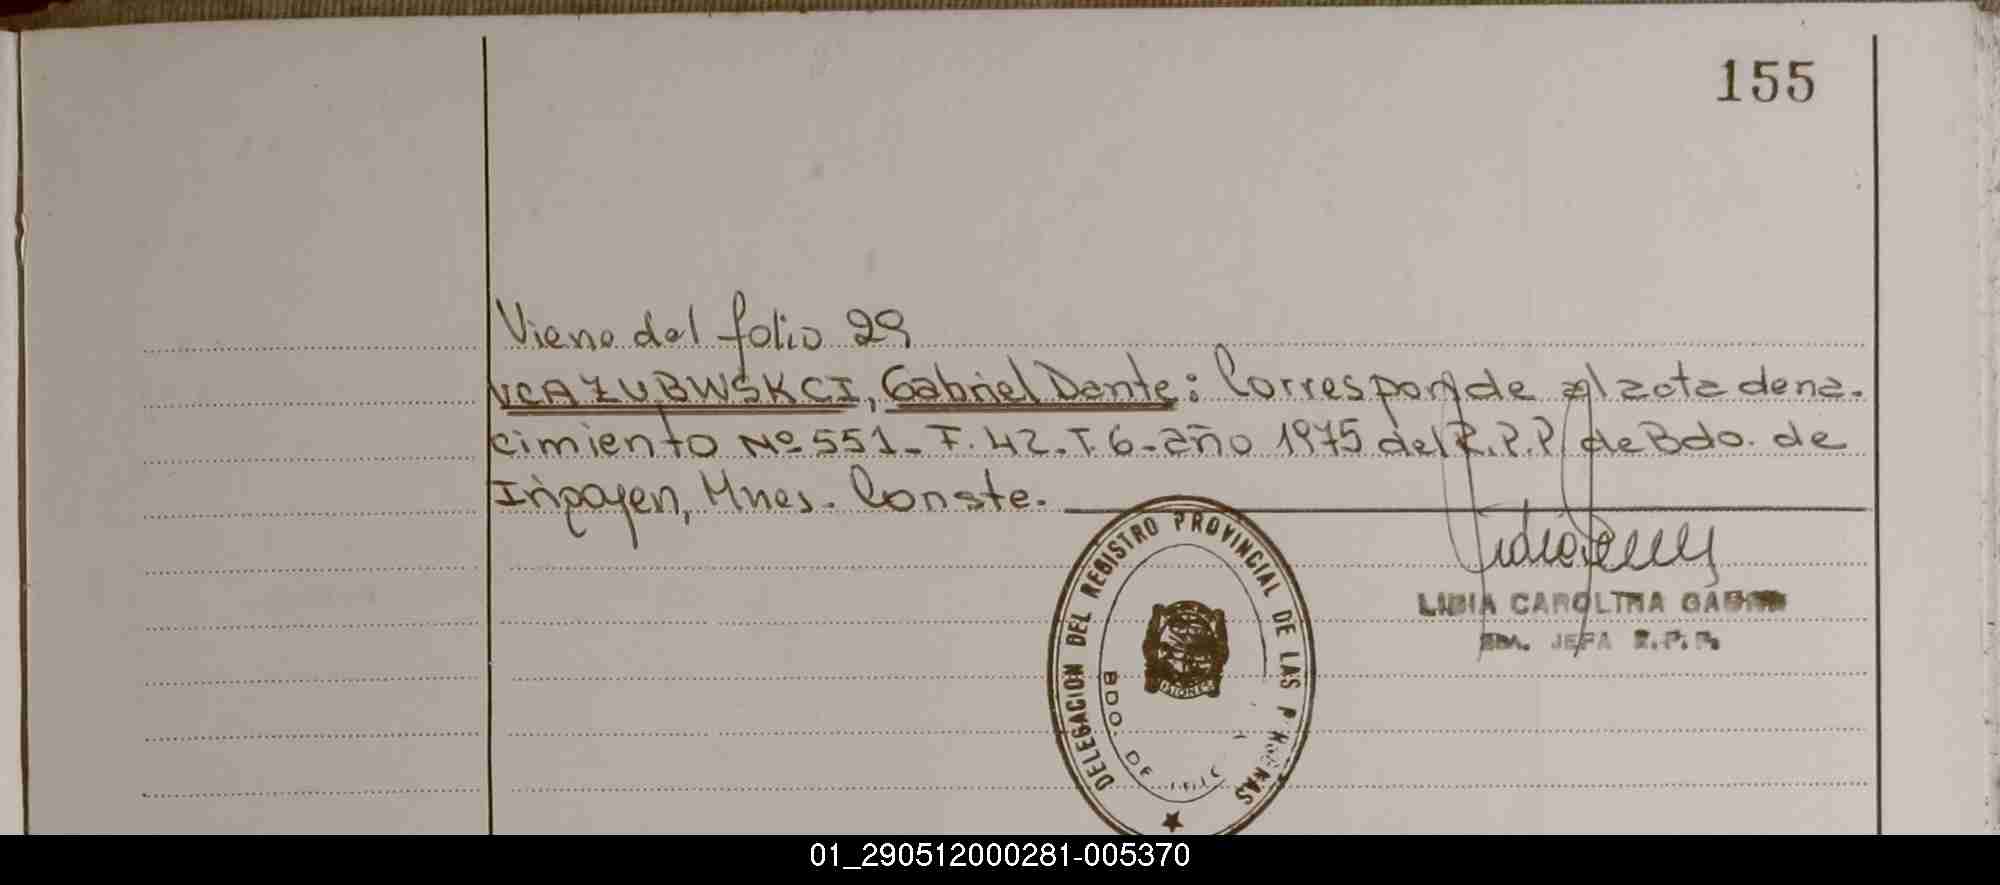 155
Viene del folio 29
VCAZUBWSKCI, Gabriel Dante: Corresponde al acta de na-
cimiento Nº 551- F. 42- T. 6- año 1975 del R.P.P. de Bdo. de
Irigoyen, Mnes. Conste.
DELEGACION DEL REGISTRO PROVINCIAL DE LAS PERSONAS
BDO. DE
LIDIA CAROLINA
JEFA R.P.P.
01_290512000281-005370